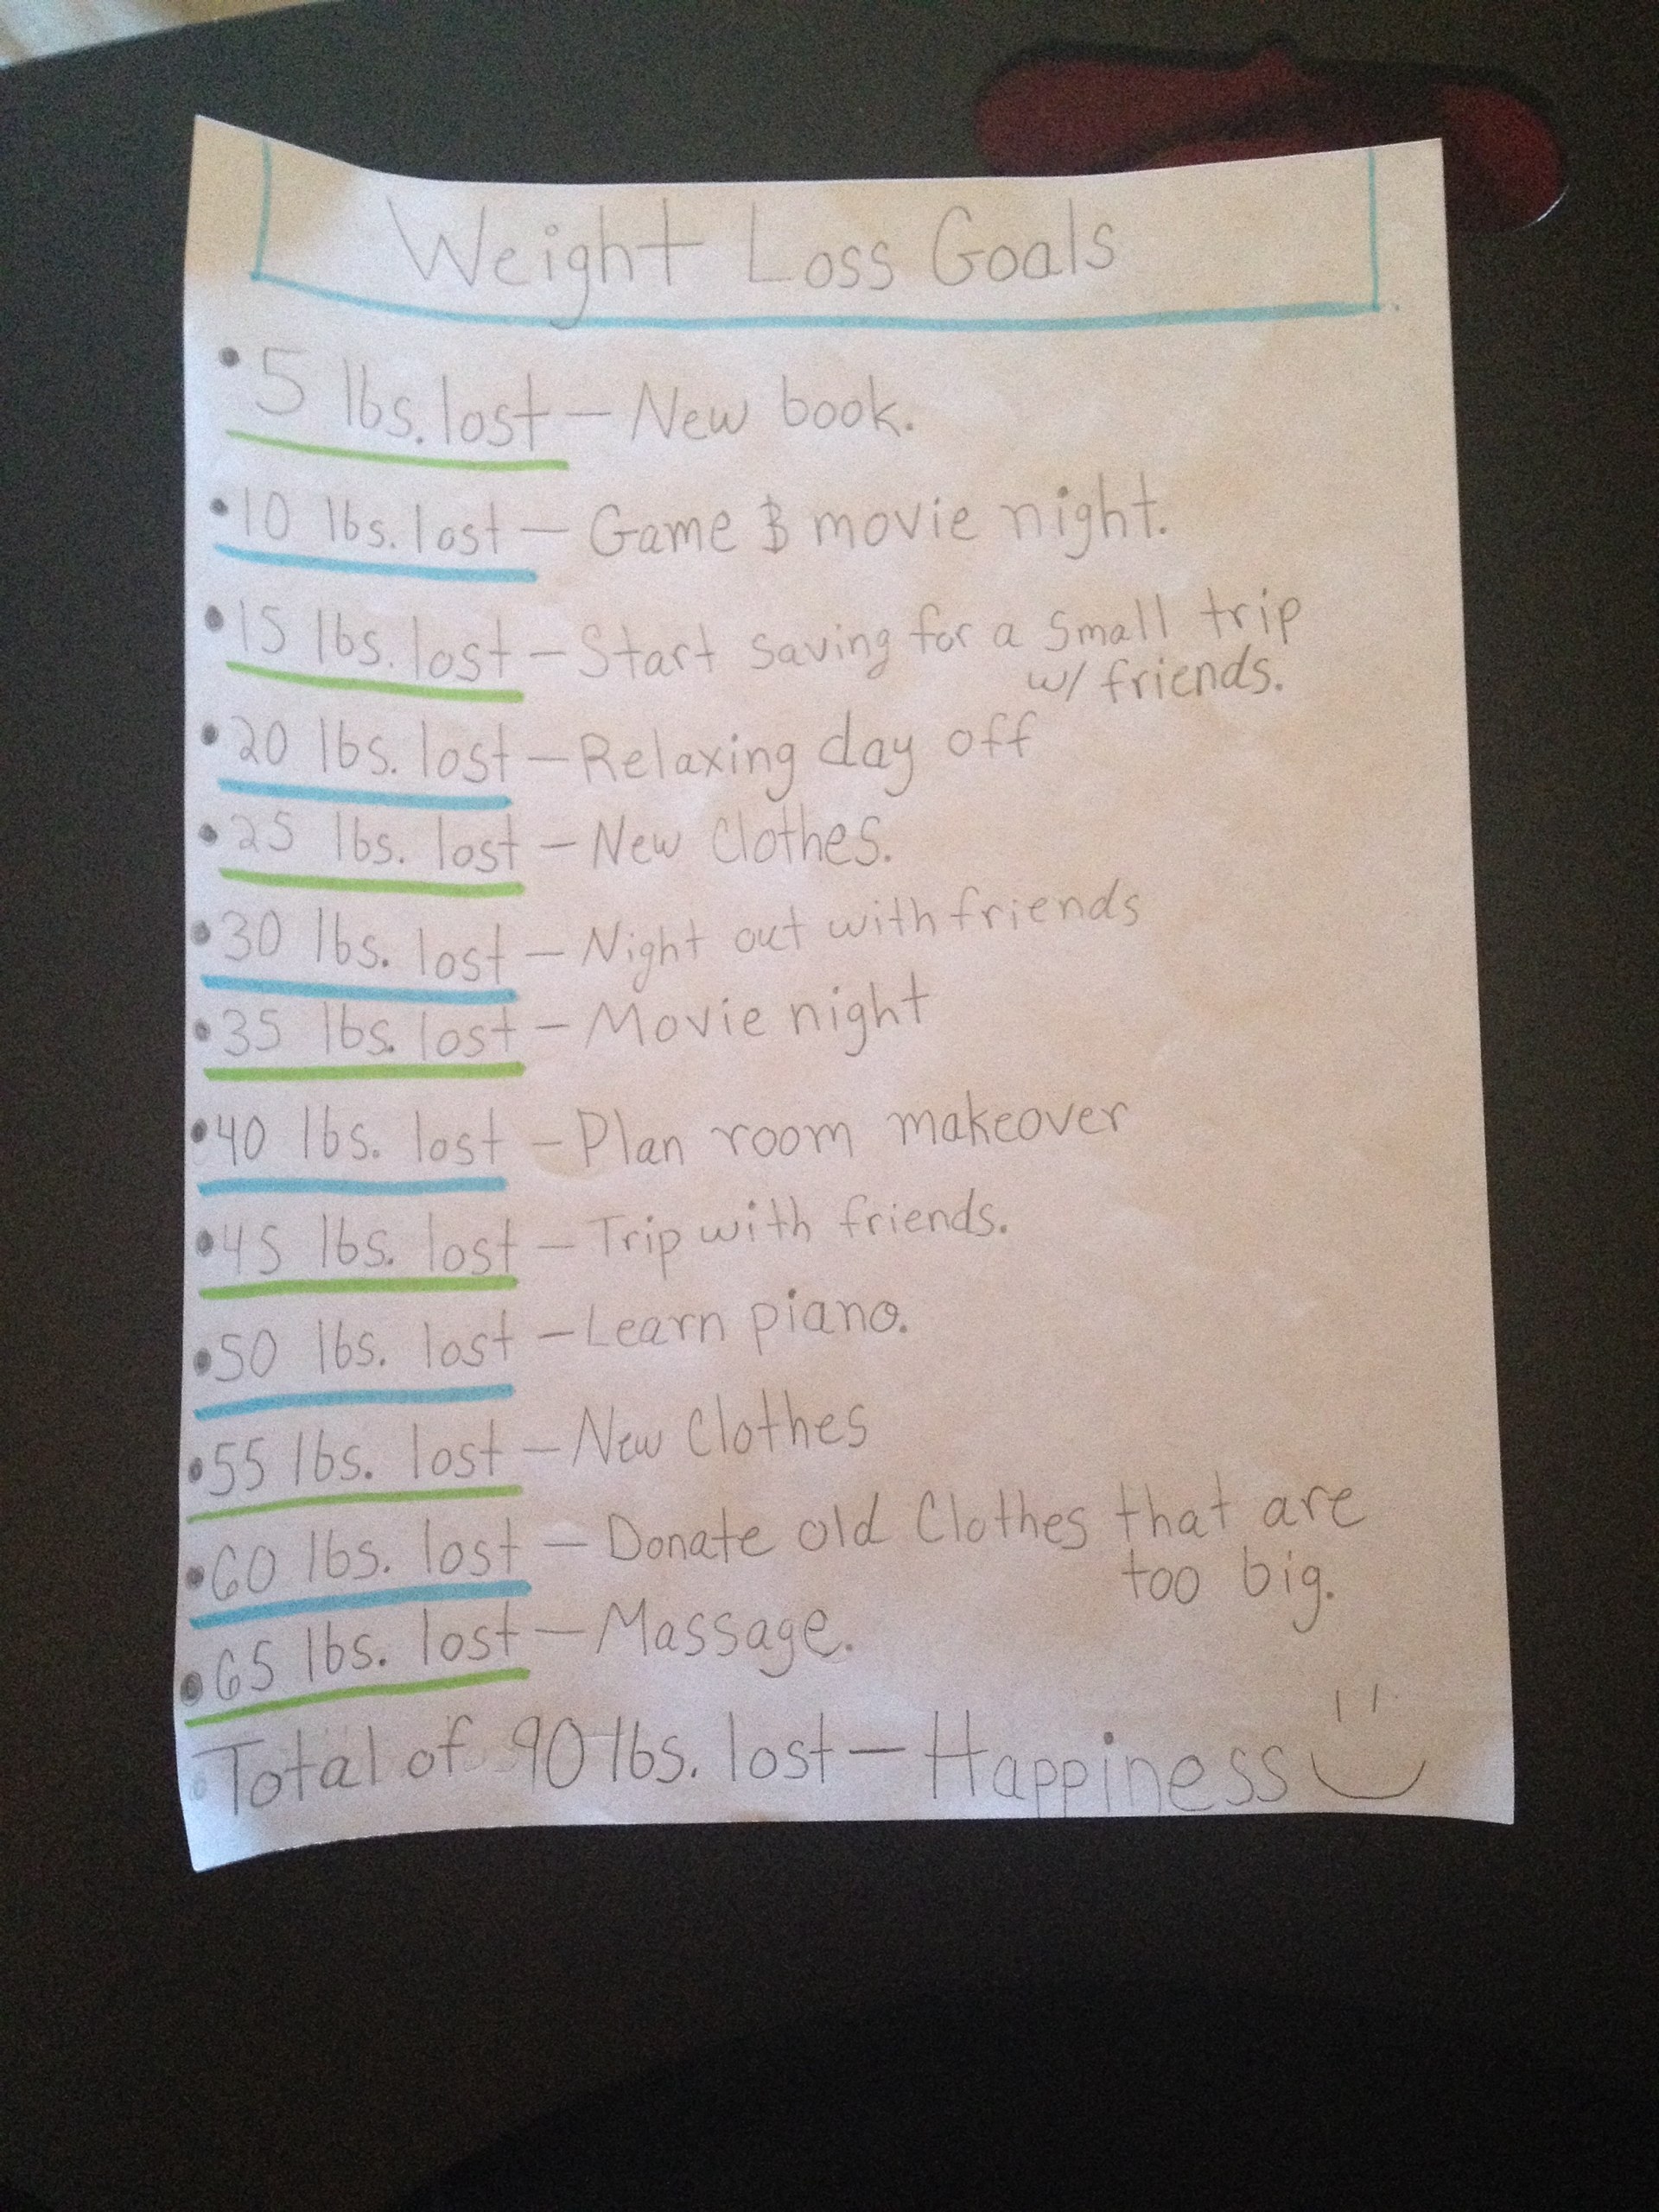 Weight Loss Goals
• 5 lbs. lost – New book.
• 10 lbs. lost – Game & movie night.
• 15 lbs. lost – Start saving for a small trip
w/ friends.
• 20 lbs. lost – Relaxing day off
• 25 lbs. lost – New Clothes.
• 30 lbs. lost – Night out with friends
• 35 lbs. lost – Movie night
• 40 lbs. lost – Plan room makeover
• 45 lbs. lost – Trip with friends.
• 50 lbs. lost – Learn piano.
• 55 lbs. lost – New Clothes
• 60 lbs. lost – Donate old Clothes that are
too big.
• 65 lbs. lost – Massage.
Total of 90 lbs. lost – Happiness